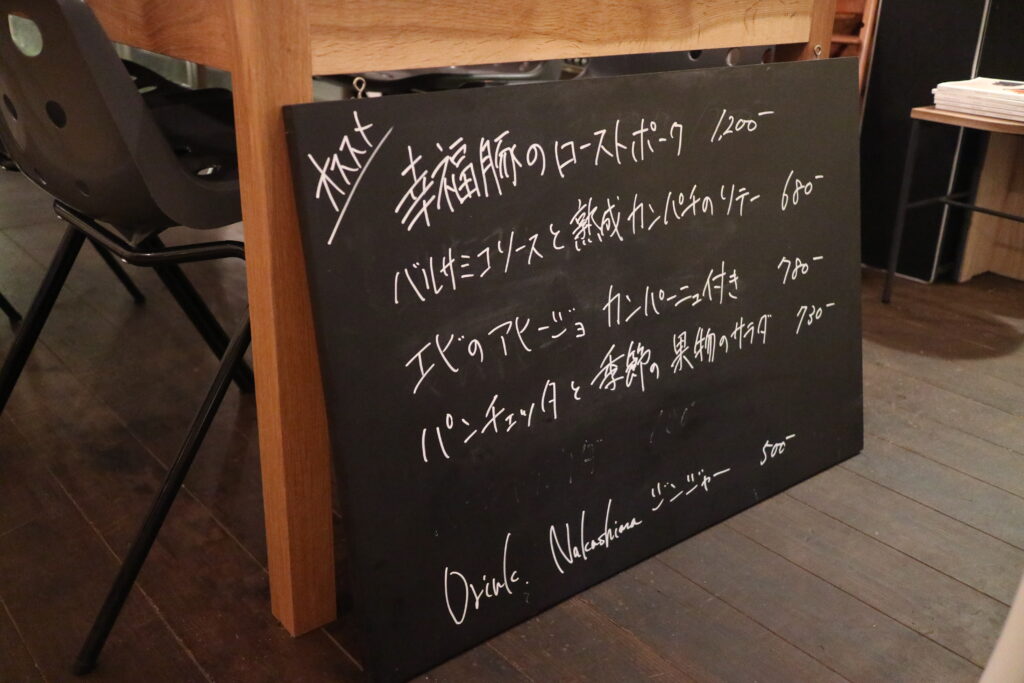 オススメ
幸福豚のローストポーク 1,200-
バルサミコソースと熟成カンパチのソテー 680-
エビのアヒージョ カンパーニュ付き 780-
パンチェッタと季節の果物のサラダ 730-
Drink. Nakashima ジンジャー 500-